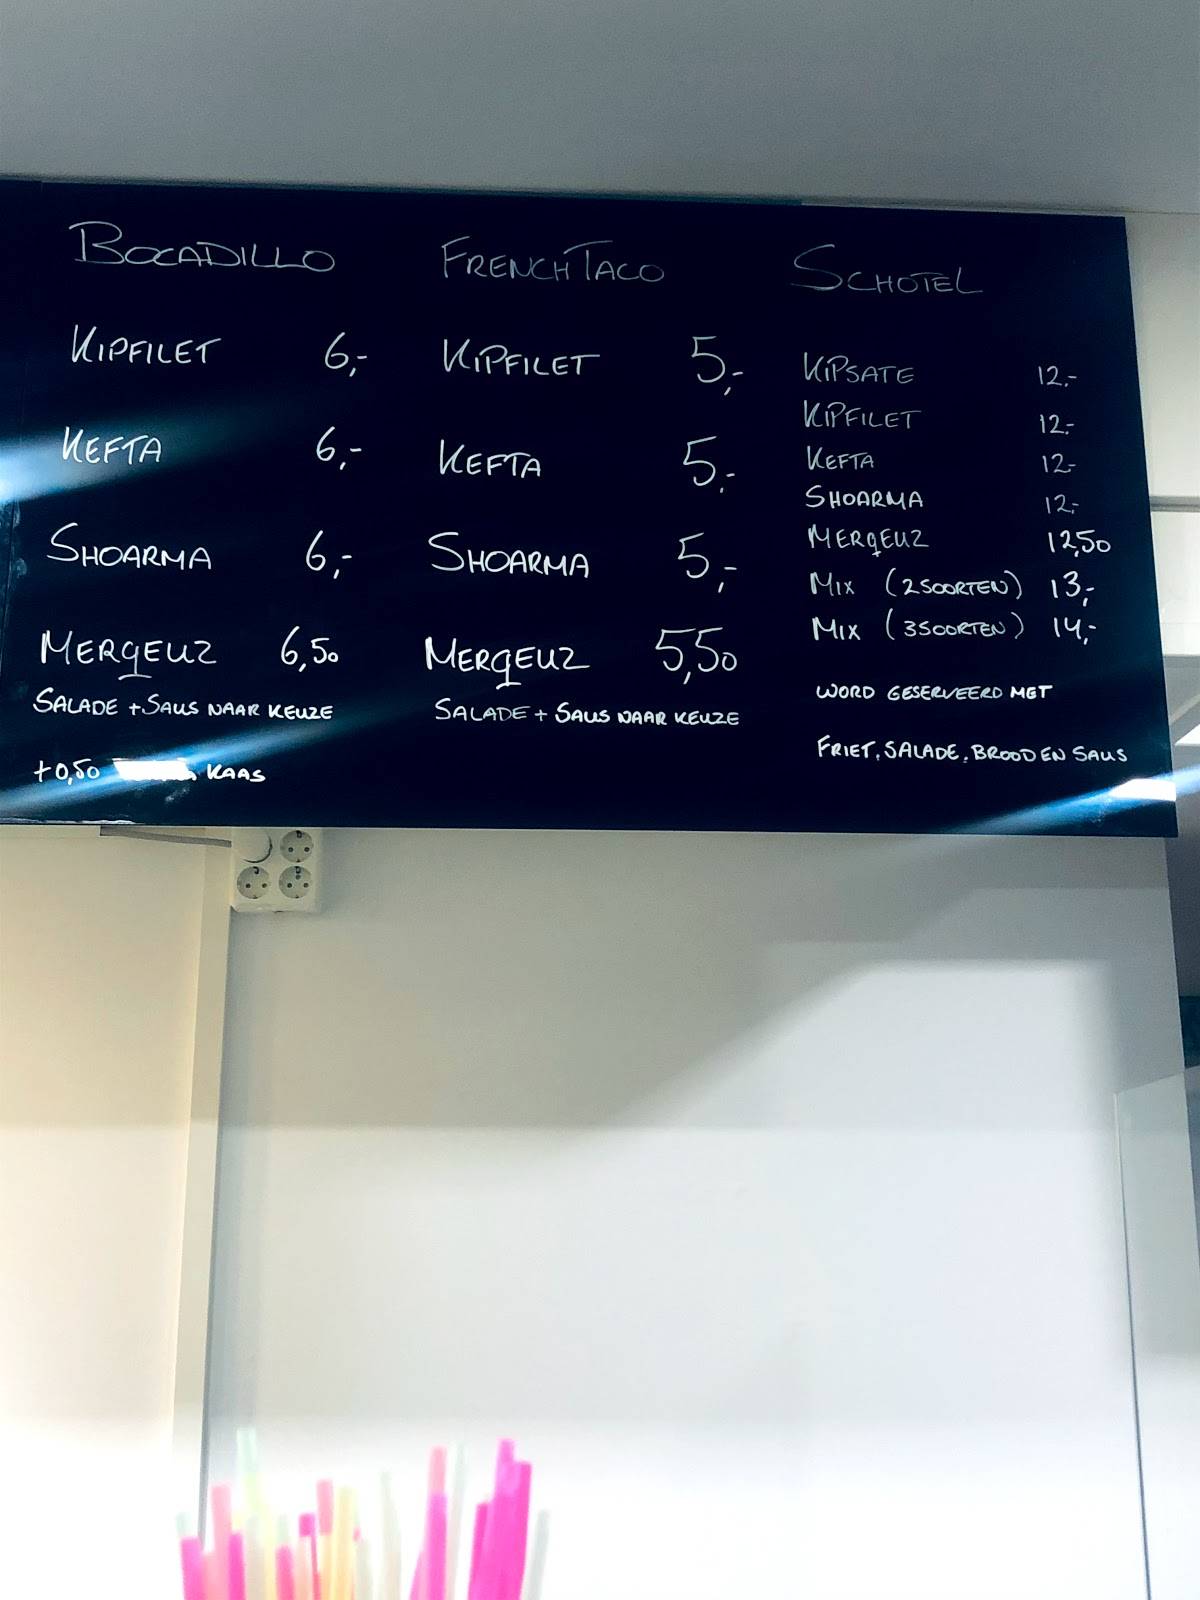 BOCADILLO
KIPFILET 6,-
KEFTA 6,-
SHOARMA 6,-
MERGEUZ 6,50
SALADE + SAUS NAAR KEUZE
+0,50 KAAS
FRENCH TACO
KIPFILET 5,-
KEFTA 5,-
SHOARMA 5,-
MERGEUZ 5,50
SALADE + SAUS NAAR KEUZE
SCHOTEL
KIPSATE 12.-
KIPFILET 12.-
KEFTA 12-
SHOARMA 12,-
MERGEUZ 12,50
MIX (2SOORTEN) 13,-
MIX (3SOORTEN) 14,-
WORD GESERVEERD MET
FRIET, SALADE, BROOD EN SAUS